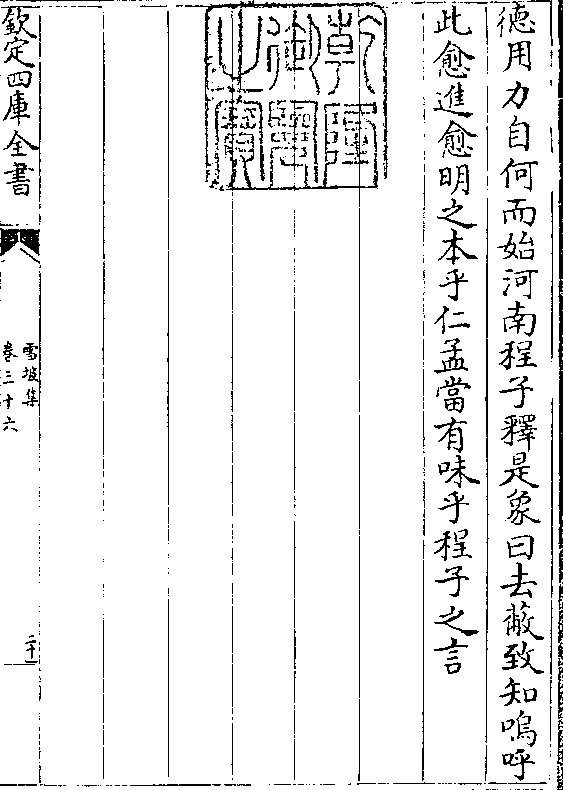 德用力自何而始河南程子釋是象曰去蔽致知嗚呼
此愈進愈明之本乎仁孟當有味乎程子之言
乾隆御覽之寶
欽定四庫全書
雪坡集
卷三十六
二十一